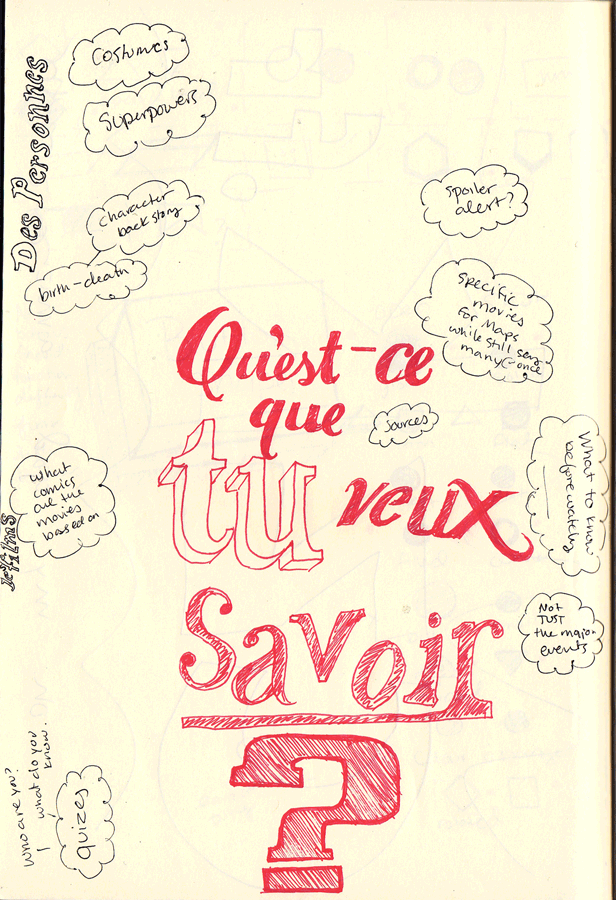 Des Personnes
Costumes
Superpowers
character
back story
birth-death
spoiler
alert?
Specific
movies
For Maps
while still
many
once
Qu'est-ce
que
tu
veux
Savoir
?
sources
What to know
before watching
what
comics
are the
movies
based on
films
Not
JUST
the major
events
who are you?
what do you
know.
quizes